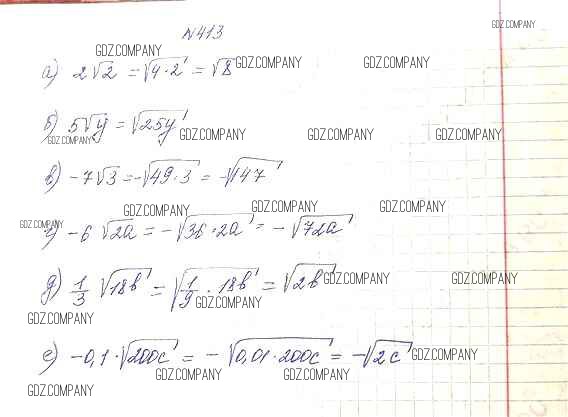 №413
GDZ.COMPANY
GDZ.COMPANY
а) 2√2 = √4·2 = √8
GDZ.COMPANY
GDZ.COMPANY
б) 5√y = √25y
GDZ.COMPANY
GDZ.COMPANY
GDZ.COMPANY
GDZ.COMPANY
в) -7√3 = -√49·3 = -√147
GDZ.COMPANY
GDZ.COMPANY
GDZ.COMPANY
GDZ.COMPANY
г) -6√2a = -√36·2a = -√72a
д) 1/3 √18b = √1/9·18b = √2b
GDZ.COMPANY
GDZ.COMPANY
GDZ.COMPANY
GDZ.COMPANY
е) -0,1·√200c = -√0,01·200c = -√2c
GDZ.COMPANY
GDZ.COMPANY
GDZ.COMPANY
GDZ.COMPANY